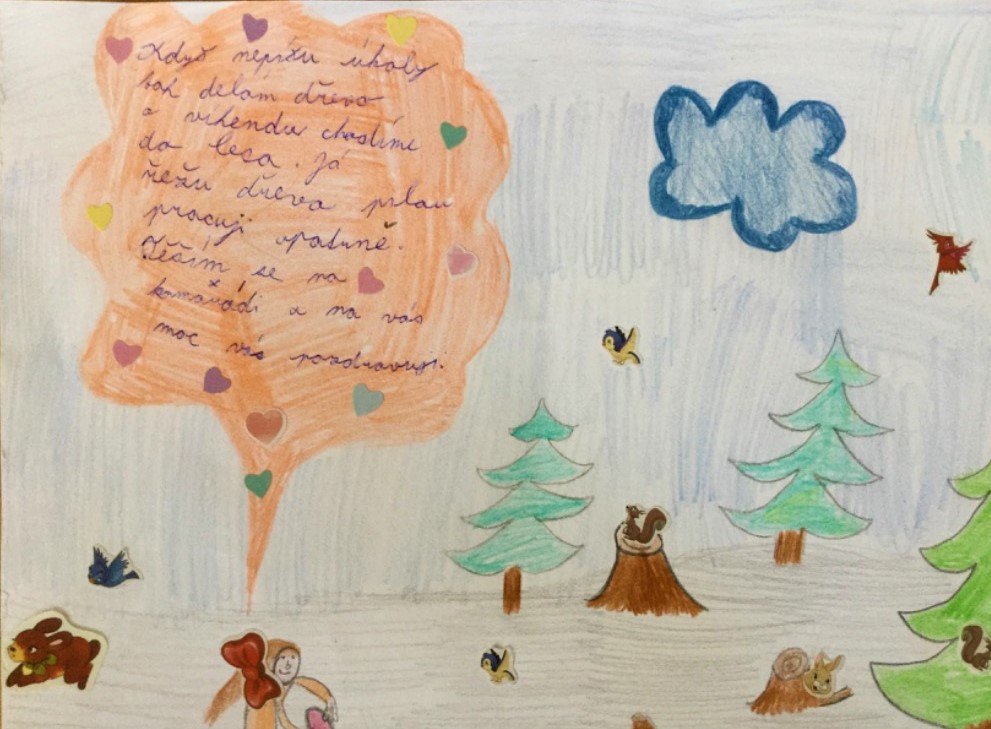 Když nepíšu úkoly
tak delám dřevo
o víkendu chodíme
do lesa. Já
řežu dřevo pilou
pracuji opatrně.
Těším se na
kamarádi a na vás
moc vás pozdravuji.